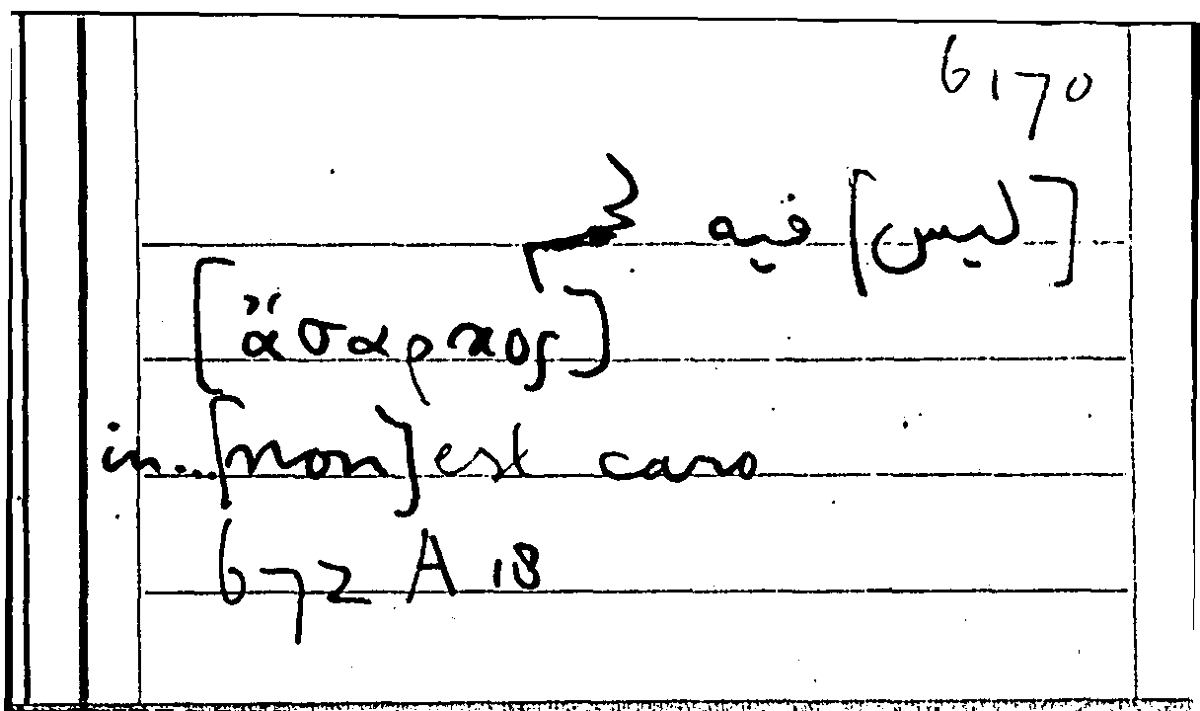 6170
[ليس] فيه لحم
[ἄσαρκος]
in...[non] est caro
672 A 18